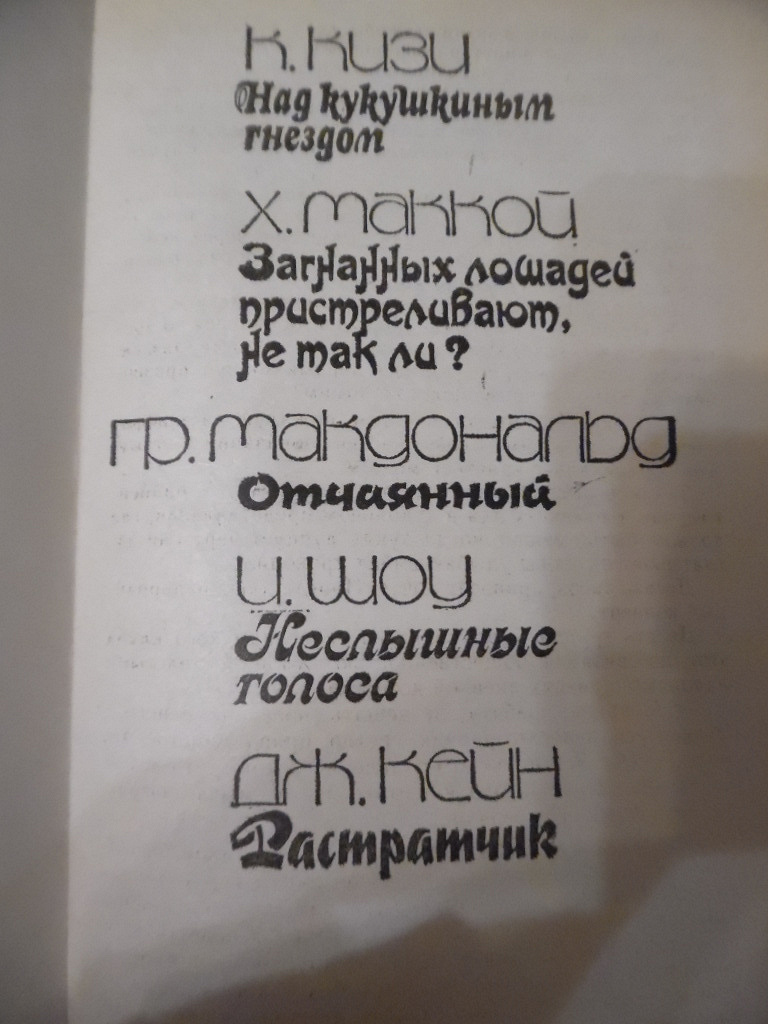 К. Кизи
Над кукушкиным
гнездом
Х. Маккой
Загнанных лошадей
пристреливают,
не так ли?
Гр. Макдональд
Отчаянный
И. Шоу
Неслышные
голоса
Дж. Кейн
Растратчик